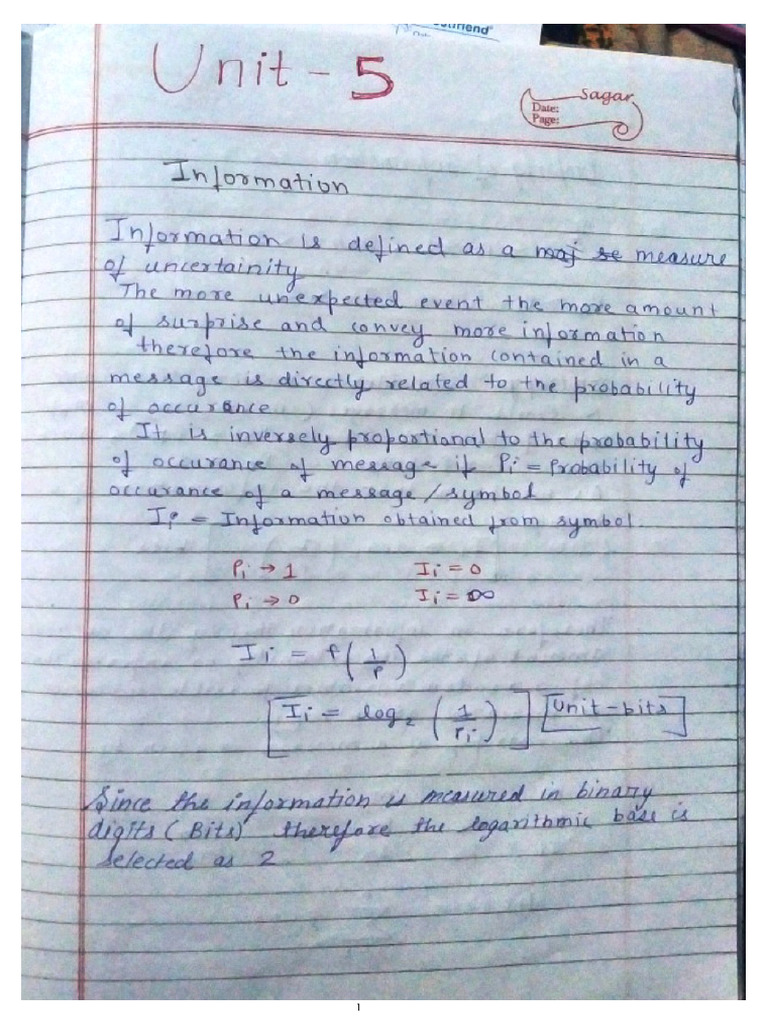 Unit - 5
Sagar
Date:
Page:
Information
Information is defined as a maj se measure
of uncertainity
The more unexpected event the more amount
of surprise and convey more information
therefore the information contained in a
message is directly related to the probability
of occurance
It is inversely proportional to the probability
of occurance of message if Pi = Probability of
occurance of a message/symbol
Ii = Information obtained from symbol.
Pi → 1 Ii = 0
Pi → 0 Ii = ∞
Ii = f(1/P)
[Ii = log₂ (1/Pi)] [Unit-bits]
Since the information is measured in binary
digits (Bits) therefore the logarithmic base is
selected as 2
1